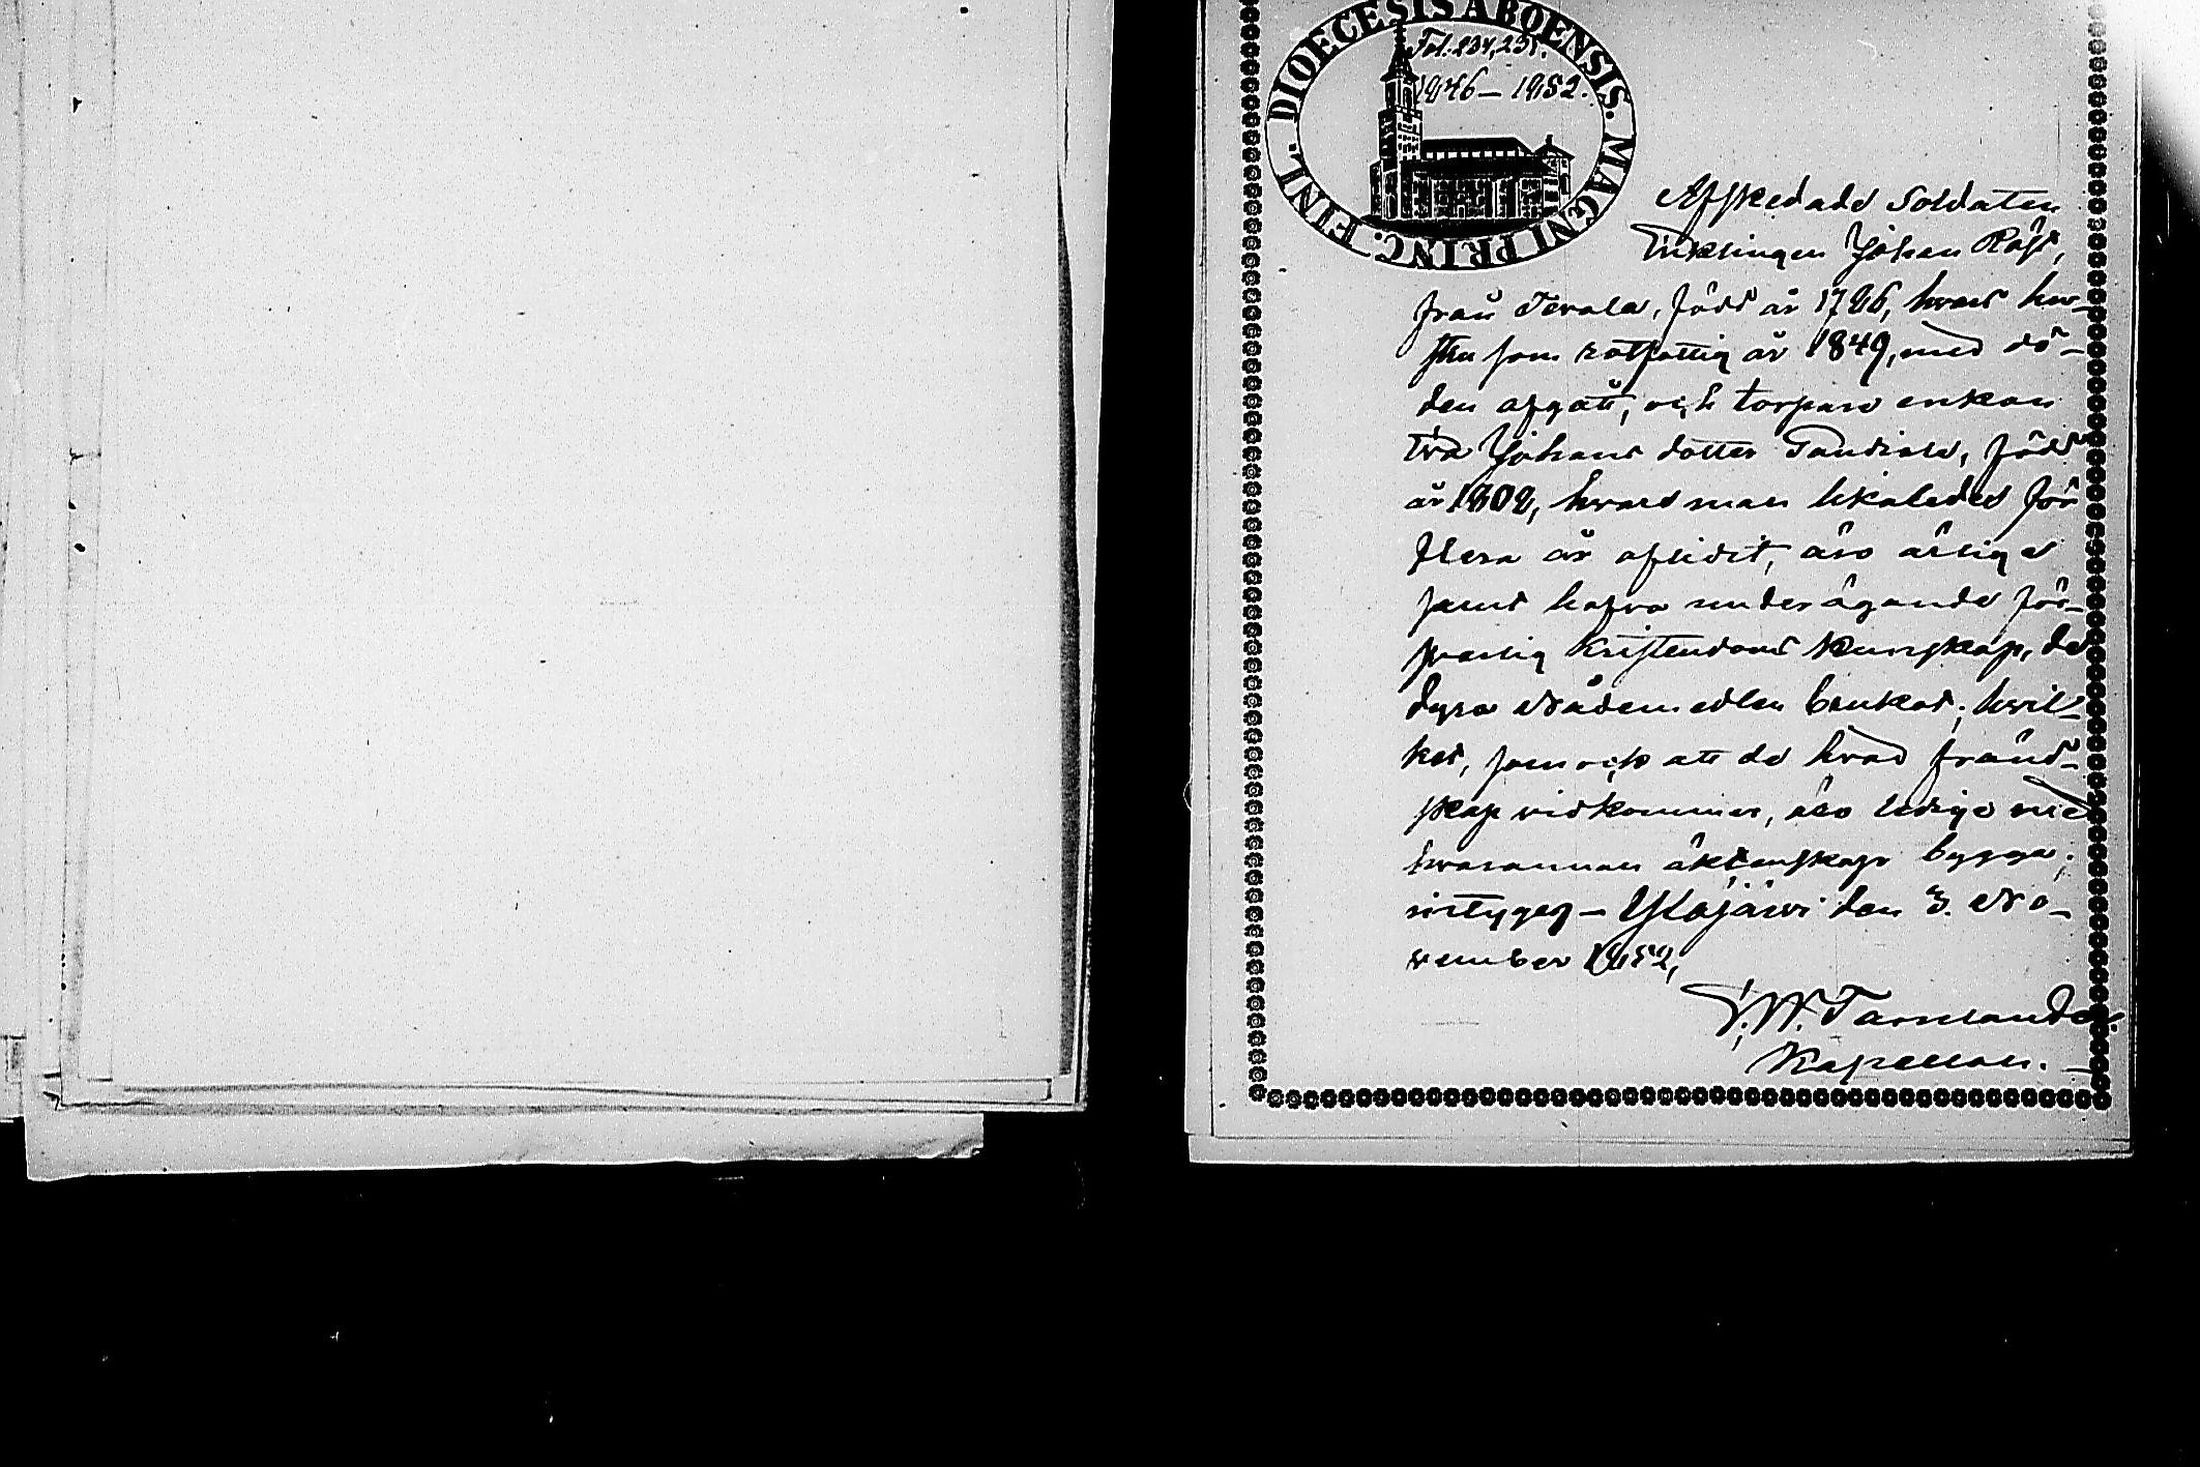 DIOECESIS ABOENSIS. MAGNI PRINC. FINL.
Fol. 234, 235.
1846 — 1852.
Afskedade Soldaten
Enklingen Johan Räf,
från Terala, född år 1786, hvars hu-
stru som rotfattig år 1849, med dö-
den afgått, och torpare enkan
Eva Johans dotter Pandiala, född
år 1808, hvars man likaledes för
flera år aflidit, äro ärlige
samt hafva underägande för-
svarlig Kristendoms Kunskap, de
dyra Nådemedlen brukat; hvil-
ket, som ock att de hvad fränd-
skap vidkommer, äro ledige med
hvarannan äktenskap bygga;
intygas — Ylöjärvi den 3. No-
vember 1852,
Kapellan.